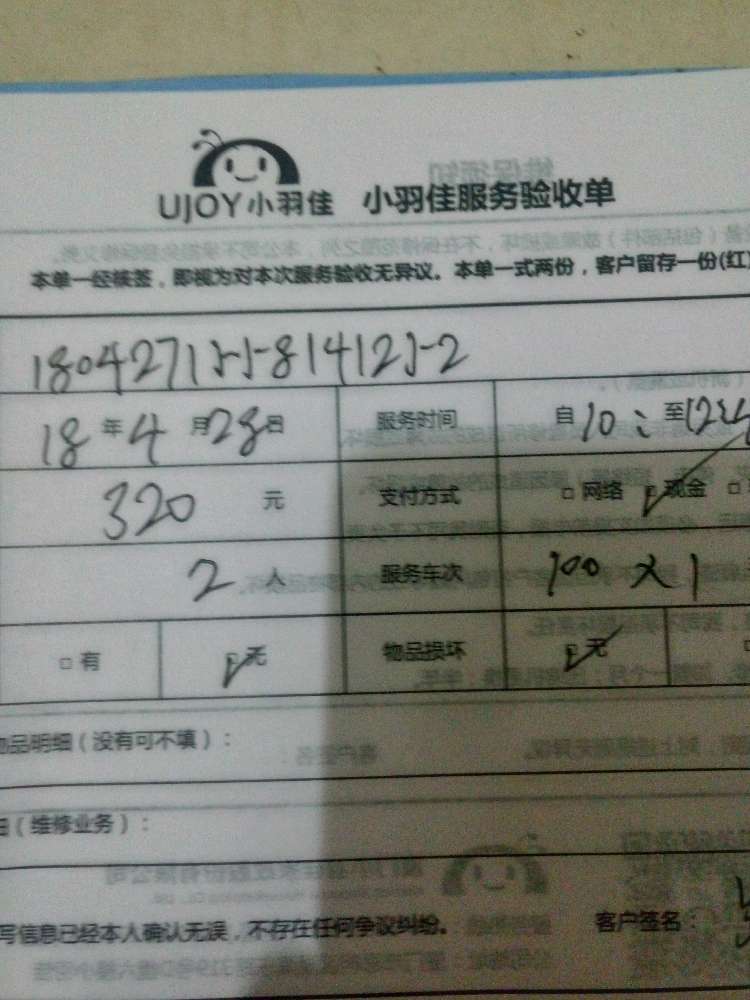 UJOY小羽佳 小羽佳服务验收单
本单一经核签，即视为对本次服务验收无异议。本单一式两份，客户留存一份(红
18年4月28日 服务时间 自10: 至
320元 支付方式 □网络 ☑现金 □
2人 服务车次 100×1
□有 ☑无 物品损坏 ☑无
物品明细（没有可不填）：
（维修业务）：
写信息已经本人确认无误，不存在任何争议纠纷。 客户签名：